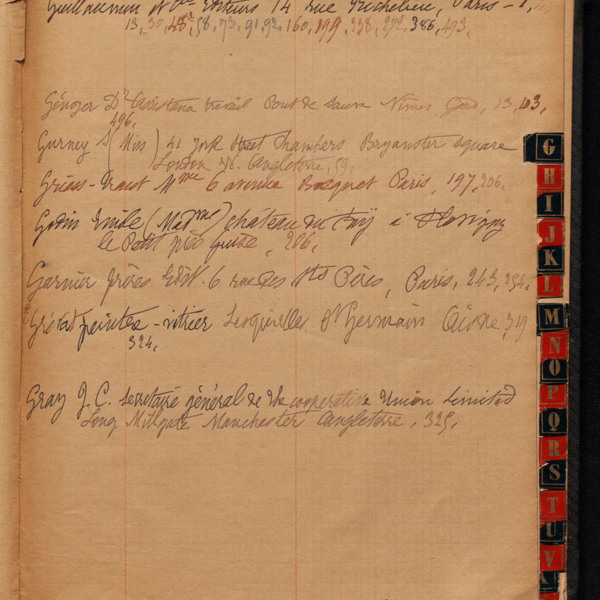 Guillaumin et Cie Editeurs 14 rue Richelieu, Paris - 1,
13, 30, 58, 73, 91, 92, 160, 199, 238, 272, 386, 493.
Dr travail Pont de Nîmes Gard, 13, 103,
496,
Gurney S (Miss) 41 York Street Chambers Bryanston Square
London W. Angleterre, 59.
Griess-Traut Mme 6 avenue Bosquet Paris, 197, 206.
Godin Emile (Madme) château du à Flavigny
le Petit près Guise, 206.
Garnier frères Edit. 6 rue des Sts Pères, Paris, 243, 254.
peintre-vitrier Lesquielles St Germain Aisne, 319
324,
Gray J.C. Secrétaire général de The cooperative Union Limited
Long Millgate Manchester Angleterre, 325,
G
H
I
J
K
L
M
N
O
P
Q
R
S
T
U
V